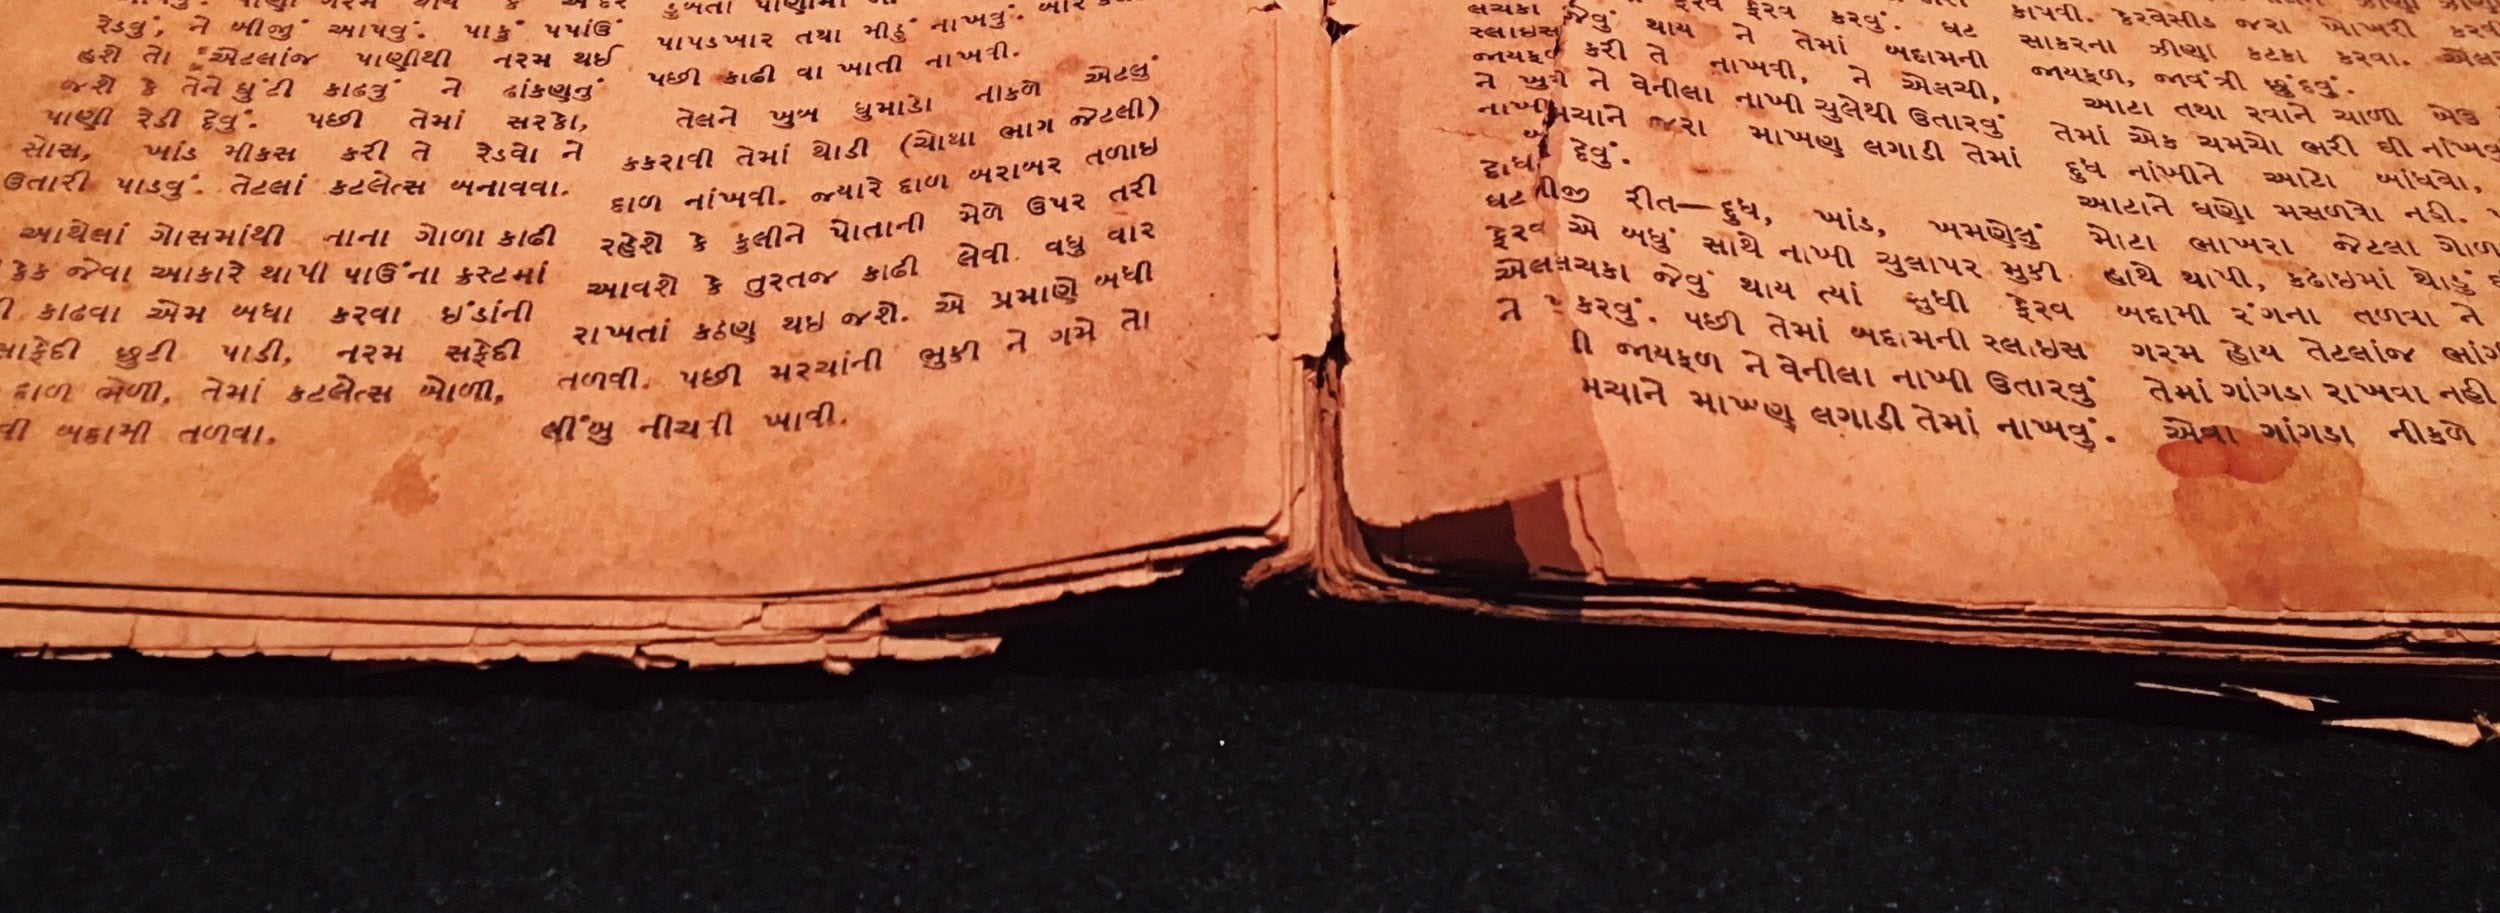 રેડવું, ને બીજું આપવું. પાકું પપાંઉ
હશે તો એટલાંજ પાણીથી નરમ થઈ
જશે કે તેને ઘુંટી કાઢવું ને ઢાંકણનું
પાણી રેડી દેવું. પછી તેમાં સરકો,
સોસ, ખાંડ મીકસ કરી તે રેડવો ને
ઉતારી પાડવું. તેટલાં કટલેત્સ બનાવવા.
આથેલાં ગોસમાંથી નાના ગોળા કાઢી
કેક જેવા આકારે થાપી પાઉંના ક્રસ્ટમાં
કાઢવા એમ બધા કરવા ઇંડાંની
છુટી પાડી, નરમ સફેદી
દાળ ભેળી, તેમાં કટલેત્સ બોળી,
બદામી તળવા.
ડુબતા પાણીમાં
પાપડખાર તથા મીઠું નાખવું.
પછી કાઢી વા ખાતી નાખવી.
તેલને ખુબ ધુમાડો નીકળે એટલું
કકરાવી તેમાં થોડી (ચોથા ભાગ જેટલી)
દાળ નાંખવી. જ્યારે દાળ બરાબર તળાઇ
રહેશે કે ફુલીને પોતાની મેળે ઉપર તરી
આવશે કે તુરતજ કાઢી લેવી વધુ વાર
રાખતાં કઠણ થઇ જશે. એ પ્રમાણે બધી
તળવી. પછી મરચાંની ભુકી ને ગમે તો
લીંબુ નીચવી ખાવી.
લચકા જેવું થાય ફેરવ ફેરવ કરવું. ઘટ
સ્લાઇસ થાય ને તેમાં બદામની
જાયફળ કરી તે નાખવી, ને એલચી,
ને ખુ ને વેનીલા નાખી ચુલેથી ઉતારવું
નાખી મચાને જરા માખણ લગાડી તેમાં
દેવું.
બીજી રીત—દુધ, ખાંડ, ખમણેલું
ફેરવ એ બધું સાથે નાખી ચુલાપર મુકી
લચકા જેવું થાય ત્યાં સુધી ફેરવ
ને કરવું. પછી તેમાં બદામની સ્લાઇસ
જાયફળ ને વેનીલા નાખી ઉતારવું
મચાને માખણ લગાડી તેમાં નાખવું.
કાપવી. કેરવેસીડ જરા ખોખરી
સાકરના ઝીણા કટકા કરવા.
જાયફળ, જાવંત્રી છુંદવું.
આટા તથા રવાને ચાળી બેઉ
તેમાં એક ચમચો ભરી ઘી નાંખવ
દુધ નાંખીને આટો બાંધવો,
આટાને ઘણો મસળવો નહી.
મોટા ભાખરા જેટલા ગોળ
હાથે થાપી, કઢાઇમાં થોડું
બદામી રંગના તળવા ને
ગરમ હોય તેટલાંજ
તેમાં ગાંગડા રાખવા નહી
એવા ગાંગડા નીકળે